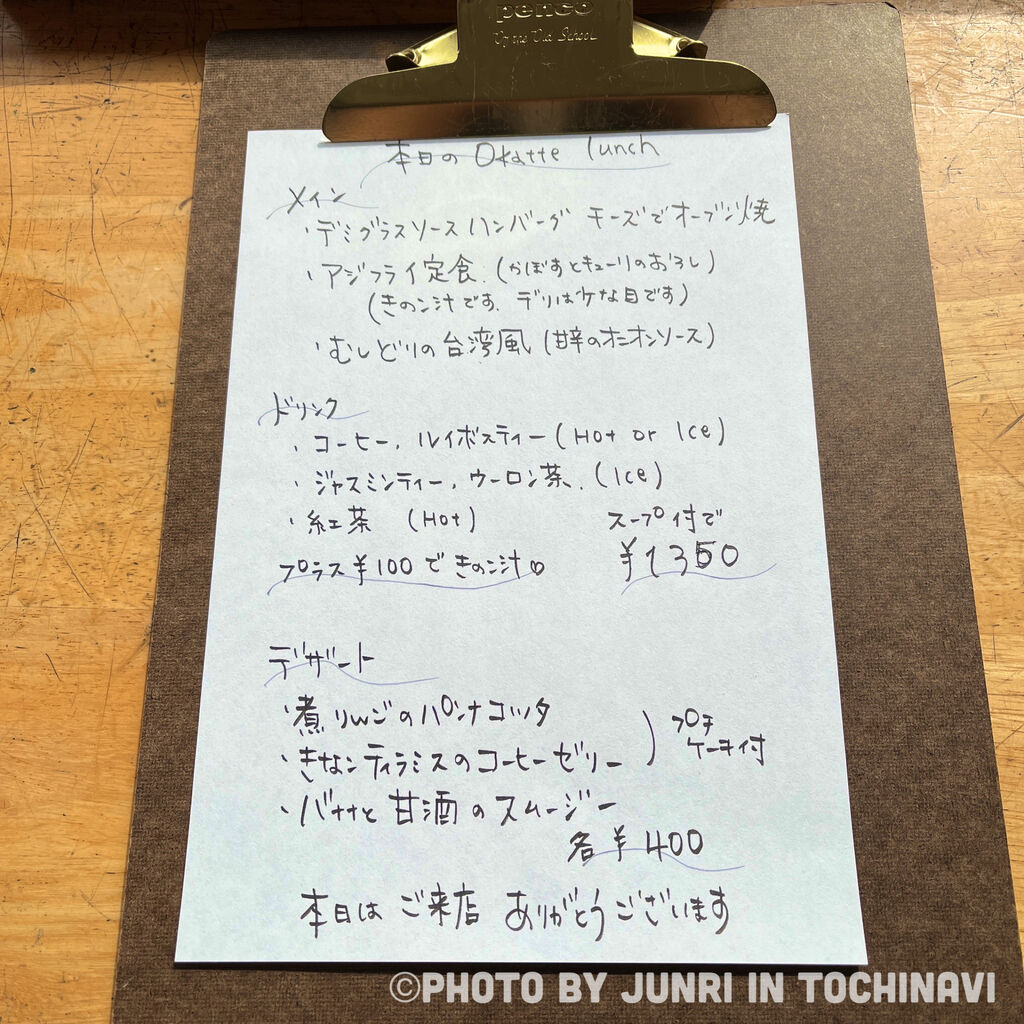 penco
本日の Okatte lunch
メイン
・デミグラスソースハンバーグ チーズでオーブン焼
・アジフライ定食.(かぼすとキューリのおろし)
(きのこ汁です. デリはケな目です)
・むしどりの台湾風(甘辛のオニオンソース)
ドリンク
・コーヒー, ルイボスティー(Hot or Ice)
・ジャスミンティー, ウーロン茶.(Ice)
・紅茶 (Hot)
スープ付で
プラス¥100できのこ汁♡
¥1350
デザート
・煮りんごのパンナコッタ
・きなこティラミスのコーヒーゼリー
プチ
ケーキ付
・バナナと甘酒のスムージー
各¥400
本日はご来店ありがとうございます
©PHOTO BY JUNRI IN TOCHINAVI